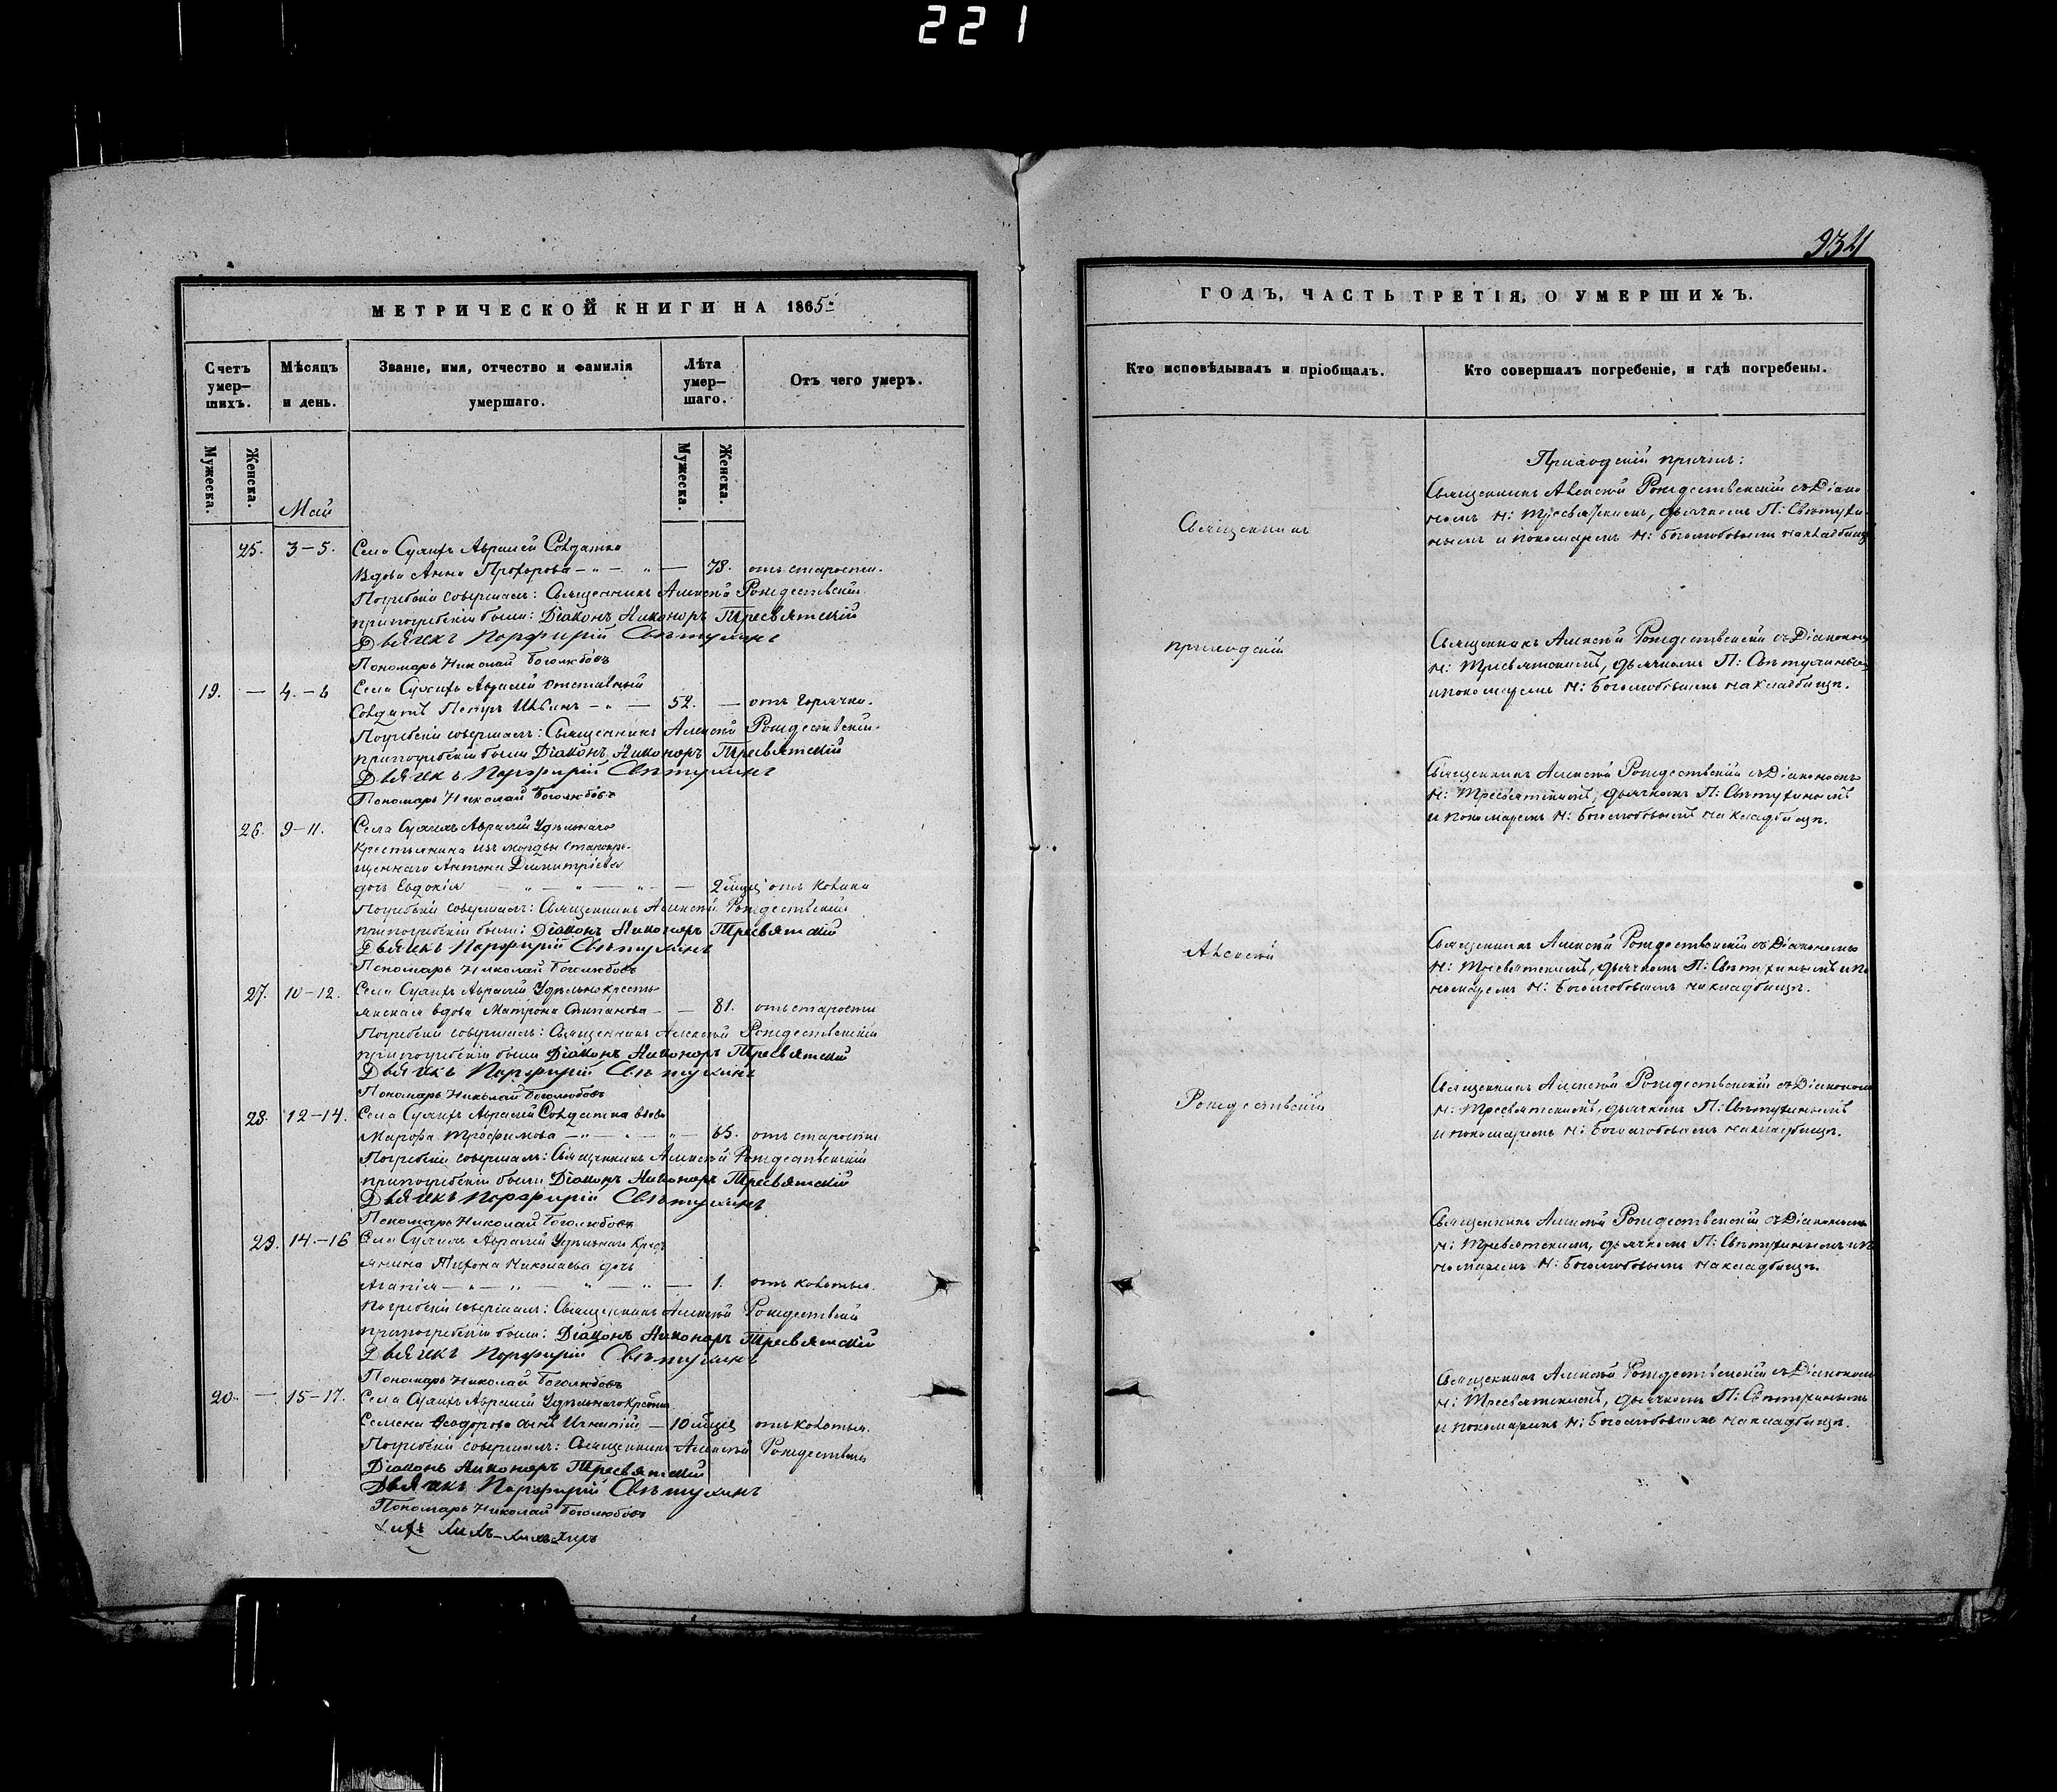 221
934
МЕТРИЧЕСКОЙ КНИГИ НА 1865
Счетъ умер-шихъ.
Мѣсяцъ и день.
Званіе, имя, отчество и фамилія умершаго.
Лѣта умер-шаго.
Отъ чего умеръ.
Мужеска.
Женска.
Май
Мужеска.
Женска.
25. 3–5. Села Авралей Солдатка
Вдова Анна Прохорова 78. отъ старости.
Погребеніе совершалъ: Священникъ Алексѣй Рождественскій
при погребеніи были: Діаконъ Никоноръ Тресвятскій
Дьячекъ Порфирій Свѣтухинъ
Пономарь Николай Боголюбовъ
19. — 4.–6 Села Авралей отставный
Солдатъ Петръ 52. — отъ горячки.
Погребеніе совершалъ: Священникъ Алексѣй Рождественскій
при погребеніи были Діаконъ Никоноръ Тресвятскій
Дьячекъ Порфирій Свѣтухинъ
Пономарь Николай Боголюбовъ
26. 9–11. Села Авралей Удѣльнаго
крестьянина изъ мордвы старокре-
щеннаго Антона Димитріева
дочь Евдокія — 2 отъ
Погребеніе совершалъ: Священникъ Алексѣй Рождественскій
при погребеніи были: Діаконъ Никоноръ Тресвятскій
Дьячекъ Порфирій Свѣтухинъ
Пономарь Николай Боголюбовъ
27. 10–12. Села Авралей Удѣльно кресть
янская вдова Матрона Степанова — 81. отъ старости
Погребеніе совершалъ: Священникъ Алексѣй Рождественскій
при погребеніи были Діаконъ Никоноръ Тресвятскій
Дьячекъ Порфирій Свѣтухинъ
Пономарь Николай Боголюбовъ
28. 12–14. Села Авралей Солдатка вдова
Марфа Трофимова — 65. отъ старости
Погребеніе совершалъ: Священникъ Алексѣй Рождественскій
при погребеніи были Діаконъ Никоноръ Тресвятскій
Дьячекъ Порфирій Свѣтухинъ
Пономарь Николай Боголюбовъ
29. 14.–16 Села Авралей Удѣльнаго Крест
янина Тихона Николаева дочь
Агапія — 1. отъ колотья.
Погребеніе совершалъ: Священникъ Алексѣй Рождественскій
при погребеніи были: Діаконъ Никоноръ Тресвятскій
Дьячекъ Порфирій Свѣтухинъ
Пономарь Николай Боголюбовъ
20. — 15–17. Села Авралей Удѣльнаго
Семена Ѳеодорова сынъ Игнатій — 10 отъ колотья.
Погребеніе совершалъ: Священникъ Алексѣй
Діаконъ Никоноръ Тресвятскій
Дьячекъ Порфирій Свѣтухинъ
Пономарь Николай Боголюбовъ
ГОДЪ, ЧАСТЬ ТРЕТІЯ, О УМЕРШИХЪ.
Кто исповѣдывалъ и пріобщалъ.
Кто совершалъ погребеніе, и гдѣ погребены.
Священникъ
приходскій
Алексѣй
Рождественскій
Приходскій причтъ:
Священникъ Алексѣй Рождественскій съ Діако-
номъ Н: Тресвятскимъ, дьячкомъ П: Свѣтухи-
нымъ и пономаремъ Н: Боголюбовымъ на кладбищѣ
Священникъ Алексѣй Рождественскій съ Діакономъ
Н: Тресвятскимъ, дьячкомъ П: Свѣтухинымъ
и пономаремъ Н: Боголюбовымъ на кладбищѣ.
Священникъ Алексѣй Рождественскій съ Діакономъ
Н: Тресвятскимъ, дьячкомъ П: Свѣтухинымъ
и пономаремъ Н: Боголюбовымъ на кладбищѣ.
Священникъ Алексѣй Рождественскій съ Діакономъ
Н: Тресвятскимъ, дьячкомъ П: Свѣтухинымъ и по
номаремъ Н: Боголюбовымъ на кладбищѣ.
Священникъ Алексѣй Рождественскій съ Діакономъ
Н: Тресвятскимъ, дьячкомъ П: Свѣтухинымъ
и пономаремъ Н: Боголюбовымъ на кладбищѣ.
Священникъ Алексѣй Рождественскій съ Діакономъ
Н: Тресвятскимъ, дьячкомъ П: Свѣтухинымъ и по
номаремъ Н: Боголюбовымъ на кладбищѣ.
Священникъ Алексѣй Рождественскій съ Діакономъ
Н: Тресвятскимъ, дьячкомъ П: Свѣтухинымъ
и пономаремъ Н: Боголюбовымъ на кладбищѣ.